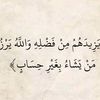 وَيَزِيدَهُم مِّن فَضْلِهِ وَاللَّهُ يَرْزُ
مَن يَشَاءُ بِغَيْرِ حِسَابٍ ﴾